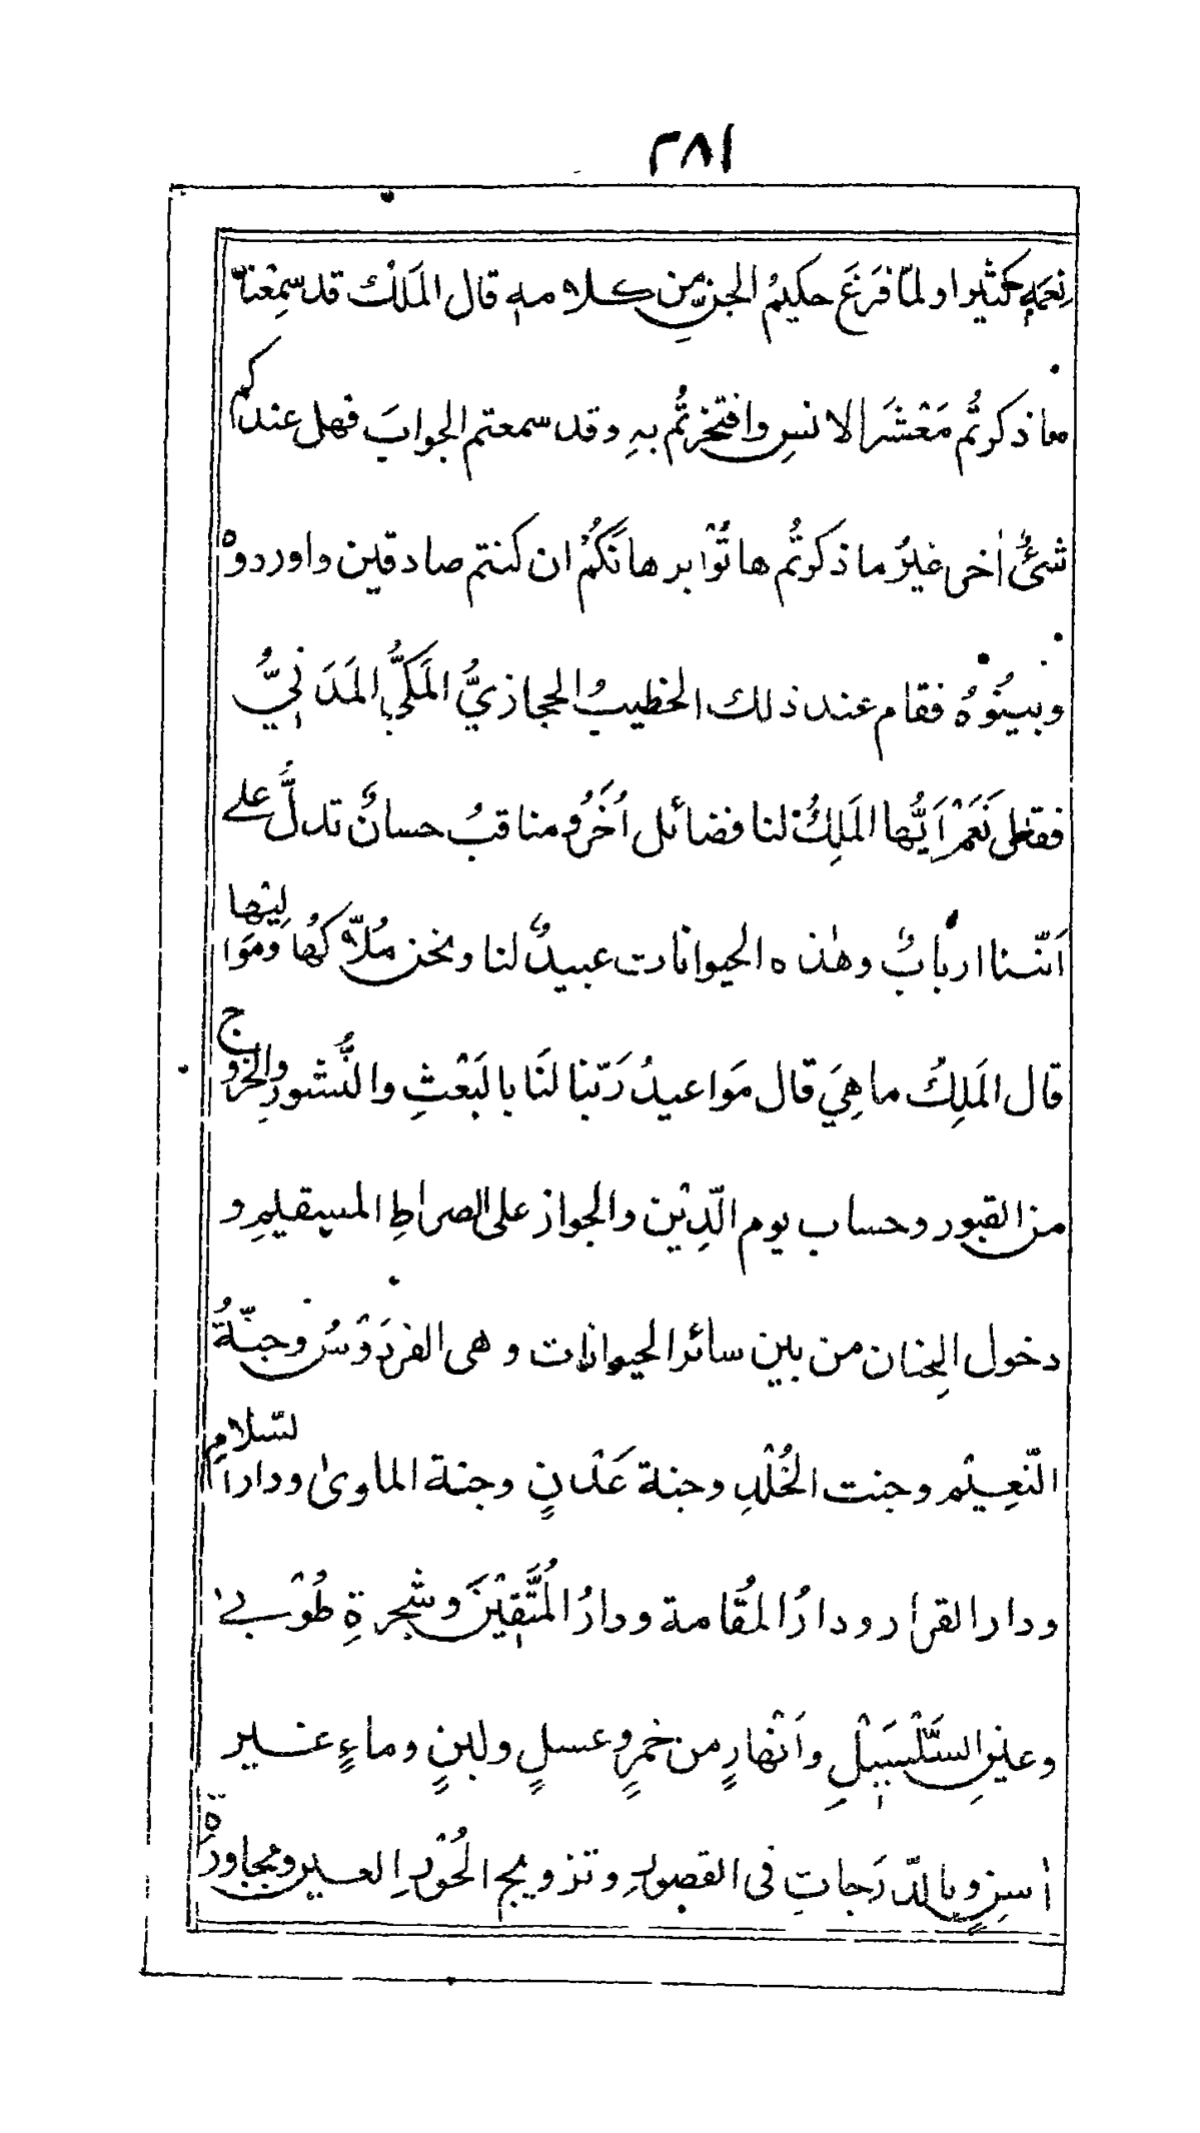 ٢٨١
نِعَمِهٖ كثيْرا ولمّا فَرَغَ حكيمُ الجنِّ مِن كلامهٖ قال المَلَك قد سمِعْنا
ما ذكرتُم مَعْشَرَ الانسِ وافتخرتُم بهِ وقد سمعتم الجوابَ فهل عندكم
شئٌ اٰخر غيرُ ما ذكرتُم هاتُوْا برهانَكُمْ ان كنتم صادقين واوردوهُ
وبيِّنُوْهُ فقام عند ذلك الخطيبُ الحجازيُّ المَكّيُّ المَدَنِيُّ
فقال نَعَمْ اَيُّها المَلِكُ لنا فضائل اُخَرُ ومناقبُ حسانٌ تدلُّ على
اَنّنا اربابٌ وهٰذه الحيوانات عبيدٌ لنا ونحن مُلّاكُها ومَوَالِيْها
قال المَلِكُ ما هِيَ قال مَواعيدُ رَبّنا لَنا بالبَعْثِ والنُّشورِ والخروج
من القبور وحساب يوم الدِّيْن والجواز على الصراطِ المستقيمِ و
دخول الجِنان من بين سائر الحيوانات وهى الفردَوْسُ وجنّةُ
النّعِيْم وجنت الخُلْدِ وجنة عَدْنٍ وجنة الماوىٰ ودار السّلامِ
ودار القرار ودارُ المُقامة ودارُ المُتَّقِيْنَ وشجرةِ طُوْبىٰ
وعينِ السَّلْسَبِيْلِ واَنْهارٍ من خمرٍ وعسلٍ ولبنٍ وماءٍ غير
اٰسنٍ وبالدّرَجاتِ فى القصورِ وتزويج الحُوْرِ العين ومجاورةِ